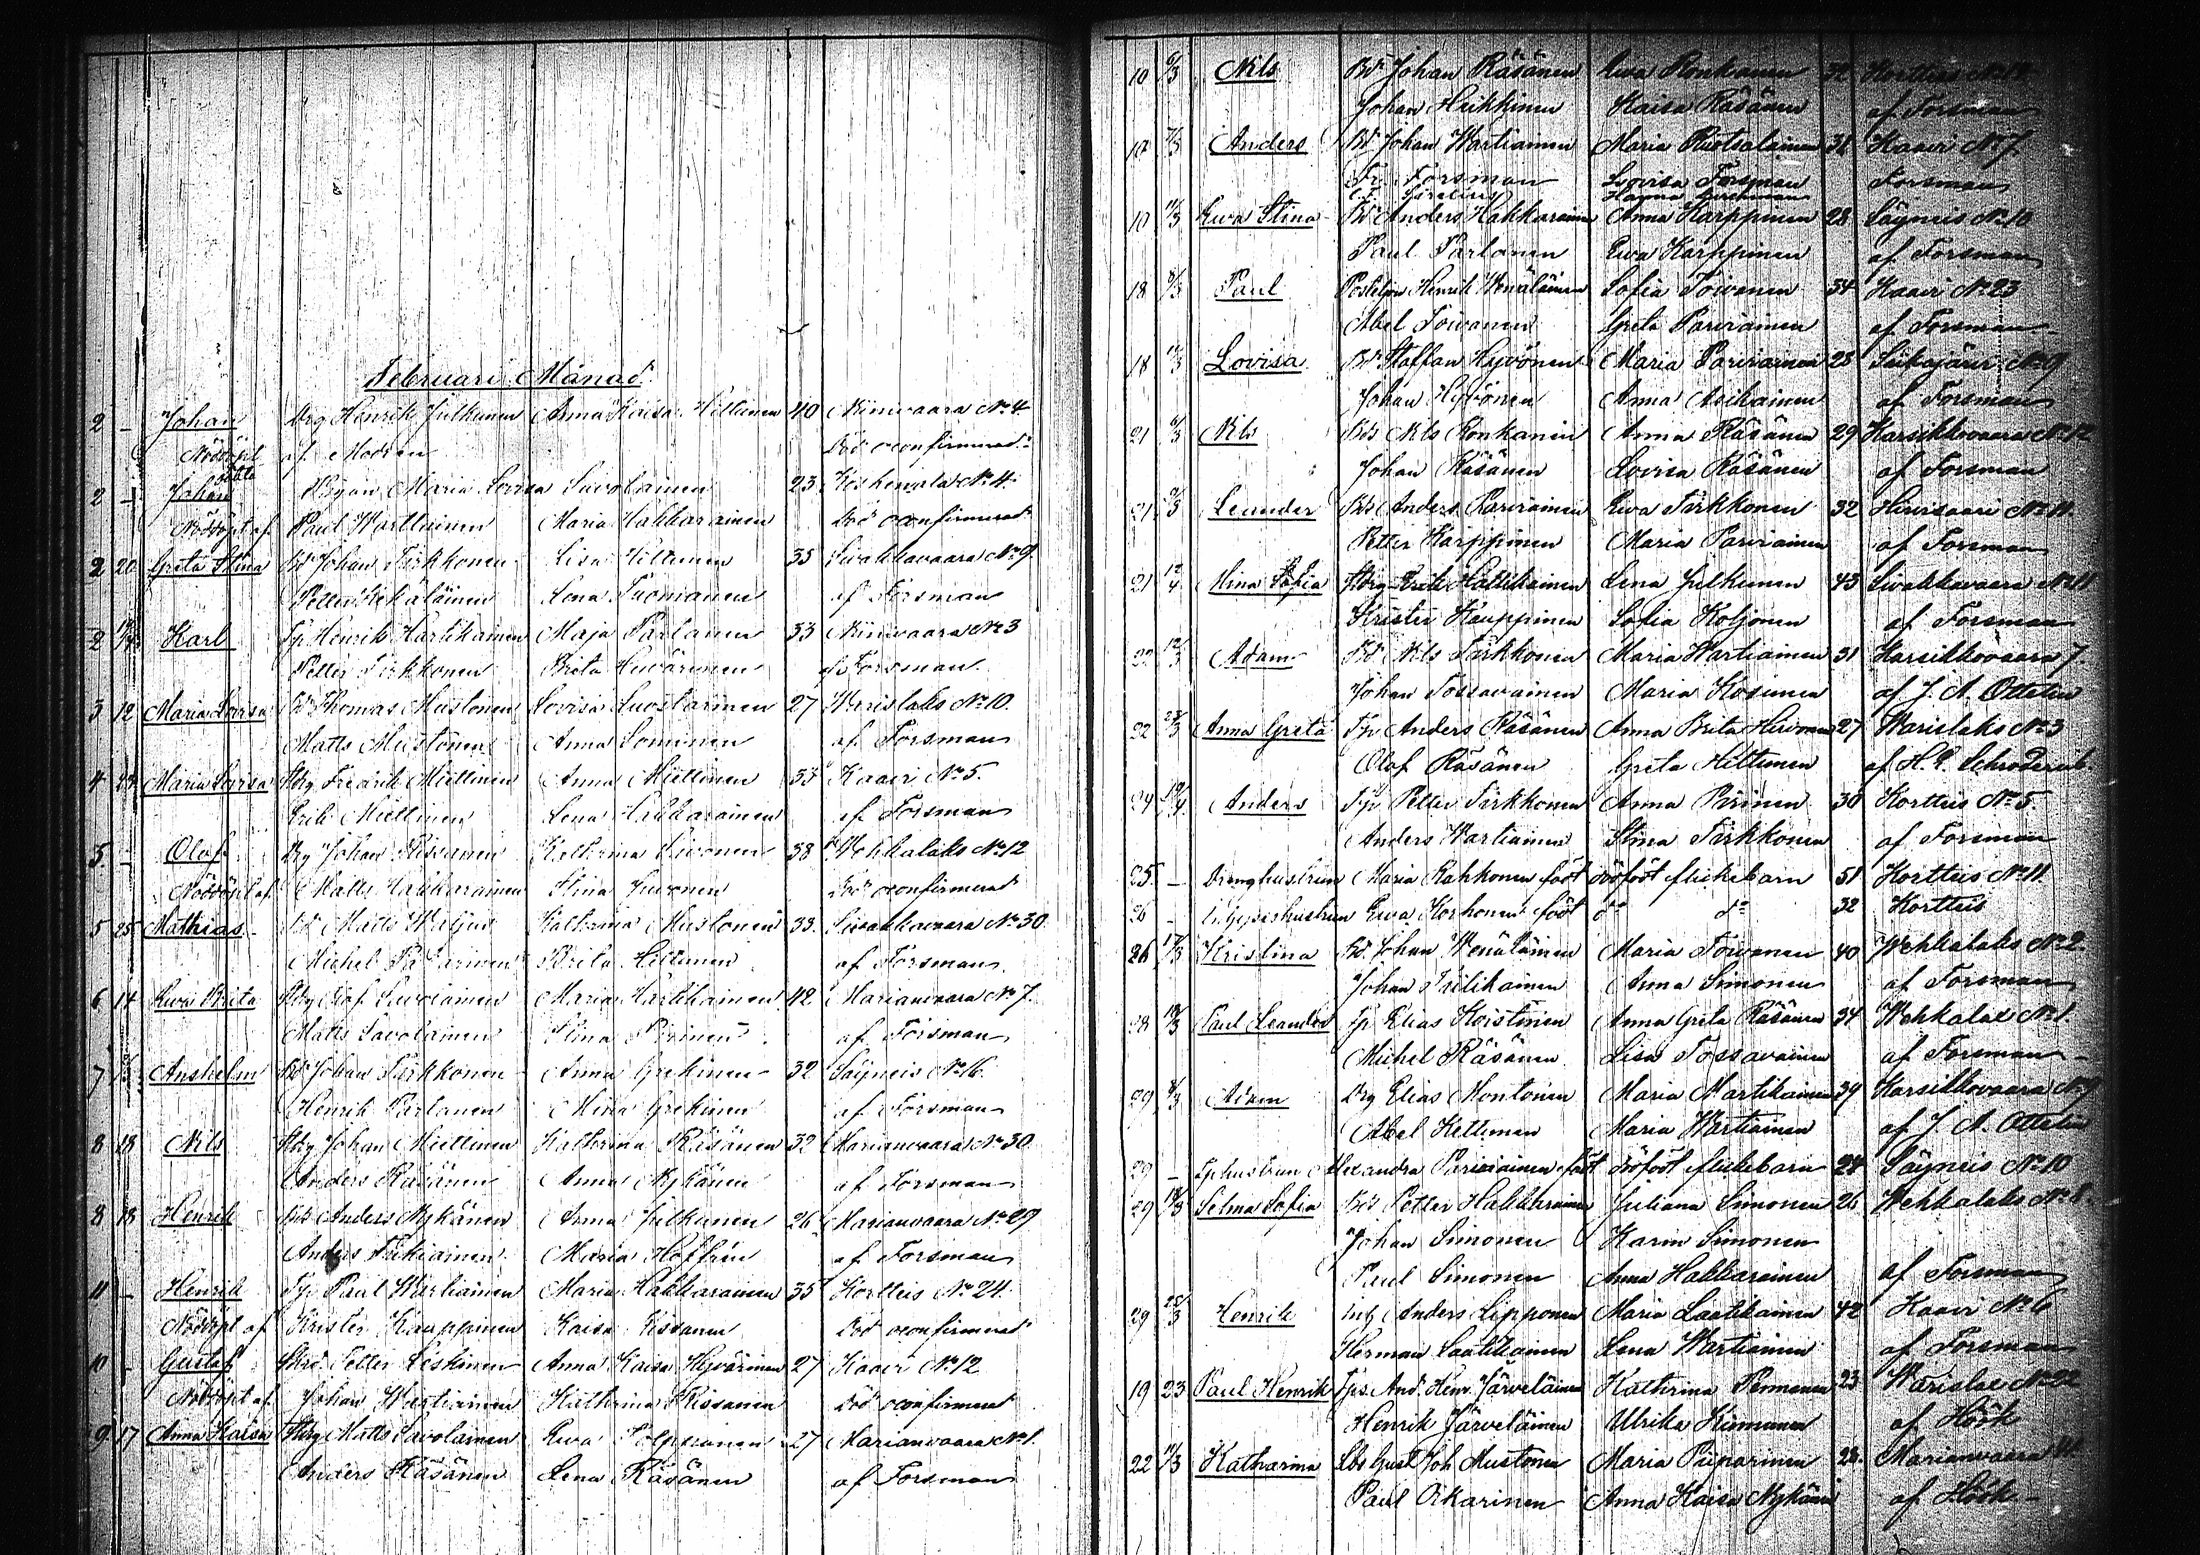 Februari Månad
2 – Johan Drg Henrik Julkunen Anna Kaisa Hiltunen 40 Niinivaara No 4
Nöddöpt af Modren Död oconfirmerad
oäkta
2 – Johan Pigan Maria Lovisa Savolainen 23 No 4
Nöddöpt af Paul Wartiainen Maria Hakkarainen Död oconfirmerad
2 20 Greta Stina Bd Johan Tirkkonen Lisa Hiltunen 35 Siwakkavaara No 9
Petter Lena Tuomainen af Forsman
2 Karl Tp Henrik Hartikainen Maja Partanen 33 Niinivaara No 3
Petter Tirkkonen Brita af Forsman
3 12 Maria Lovisa Bd Thomas Mustonen Lovisa Luostarinen 27 Warislaks No 10
Matts Mustonen Anna Lominen af Forsman
4 Maria Lovisa Stdrg Fredrik Miettinen Anna Miettinen 33 Kaavi No 5
Erik Miettinen Lena Hakkarainen af Forsman
5 – Olof Drg Johan Rissanen Katherina 38 Wehkalaks No 12
Nöddöpt af Matts Hakkarainen Stina Död oconfirmerad
5 25 Mathias Bd Matts Katherina Mustonen 33 Siwakkavaara No 30
Michel Brita Hiltunen af Forsman
6 14 Ewa Brita Stdrg Olof Savolainen Maria Hartikainen 42 Marianvaara No 7
Matts Savolainen Stina Pirinen af Forsman
7 Anshelm Bd Johan Tirkkonen Anna Grekinen 32 Säyneis No 16
Henrik Partanen Mina Grekinen af Forsman
8 18 Nils Stdrg Johan Miettinen Katherina Räsänen 32 Marianvaara No 30
Anders Räsänen Anna Nykänen af Forsman
8 18 Henrik Bds Anders Nykänen Anna Julkunen 26 Marianvaara No 29
Anders Maria Hoffrén af Forsman
11 – Henrik Tp Paul Wartiainen Maria Hakkarainen 35 Kortteis No 24
Nöddöpt af Krister Kauppinen Kaisa Rissanen Död oconfirmerad
10 – Gustaf Petter Leskinen Anna Kaisa Hyvärinen 27 Kaavi No 12
Nöddöpt af Johan Wartiainen Katherina Rissanen Död oconfirmerad
9 17 Anna Kaisa Stdrg Matts Savolainen Ewa Tolppanen 27 Marianvaara No 1
Anders Räsänen Lena Räsänen af Forsman
10 6/3 Nils Bd Johan Räsänen Ewa Ronkainen 32
Johan Heikkinen Kaisa Räsänen af Forsman
17 7/3 Anders Bd Johan Wartiainen Maria Ruotsalainen 31 Kaavi No 7
Fr. Forsman Lovisa Forsman Forsman
10 11/3 Ewa Stina Bd Anders Hakkarainen Anna Karppinen 28 Säyneis No 10
Paul Partanen Ewa Karppinen af Forsman
18 Paul Postiljon Henrik Wenäläinen Sofia Toivanen 34 Kaavi No 23
Abel Toivanen Greta Parviainen af Forsman
18 11/3 Lovisa Bd Staffan Hyvönen Maria Parviainen 28 Siikajärvi No 9
Johan Hyvönen Anna Asikainen af Forsman
21 6/3 Nils Bds Nils Ronkanen Anna Räsänen 29 Karsikkovaara No 12
Johan Räsänen Lovisa Räsänen af Forsman
21 Leander Bds Anders Parviainen Ewa Tirkkonen 32 Hirvisaari No 11
Petter Karppinen Maria Parviainen af Forsman
21 12/4 Mina Sofia Stdrg Erik Hartikainen Lena Julkunen 43 Siwakkavaara No 11
Krister Kauppinen Sofia Koljonen af Forsman
22 12/3 Adam Bd Nils Tirkkonen Maria Wartiainen 31 Karsikkovaara 7
Johan Tossavainen Maria Kosunen af J. A. Ottelin
22 28/3 Anna Greta Tp Anders Räsänen Anna Brita 27 Warislaks No 3
Olof Räsänen Greta Hiltunen af H. G. Schroderus
24 Anders Tp Petter Tirkkonen Anna Pirinen 30 Kortteis No 5
Anders Wartiainen Stina Tirkkonen af Forsman
25 – Drenghustrun Maria Rahkonen födt dödfödt flickebarn 51 Kortteis No 11
26 – Ewa Korhonen födt do do 32 Kortteis
26 17/3 Kristina Bd Johan Wenäläinen Maria Toivanen 40 Wehkalaks No 2
Johan Anna Simonen af Forsman
28 Paul Leander Tp Elias Koistinen Anna Greta Räsänen 34 Wehkalax No 1
Michel Räsänen Lisa Tossavainen af Forsman
29 Adam Drg Elias Montonen Maria Martikainen 39 Karsikkovaara No 9
Abel Kettunen Maria Wartiainen af J. A. Ottelin
29 – Tphustrun Alexandra Parviainen födt dödfödt flickebarn 24 Säyneis No 10
29 Selma Sofia Bds Petter Hakkarainen Juliana Simonen 26 Wehkalaks No 8
Johan Simonen Karin Simonen
Paul Simonen Anna Hakkarainen af Forsman
29 25/3 Henrik Anders Lipponen Maria Laatikainen 42 Kaavi No 6
Herman Laatikainen Lena Wartiainen af Forsman
19 23 Paul Henrik Tps And. Henr. Järveläinen Katherina Pennanen 23 Warislax No 22
Henrik Järveläinen Ulrika Kinnunen af Höök
22 11/3 Katharina Joh Mustonen Maria Piiparinen 28 Marianvaara
Paul Oikarinen Anna Kaisa Nykänen af Höök